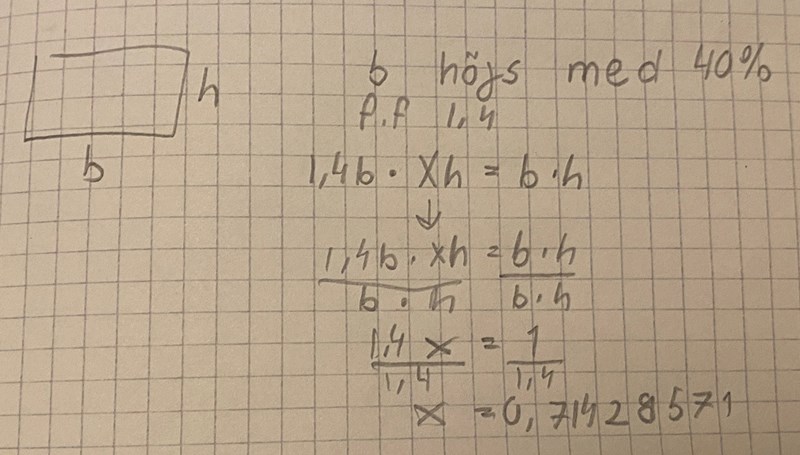 h
b
b höjs med 40%
f.f 1,4
1,4b · xh = b · h
↓
1,4b · xh / b · h = b · h / b · h
1,4 x / 1,4 = 1 / 1,4
x = 0,71428571